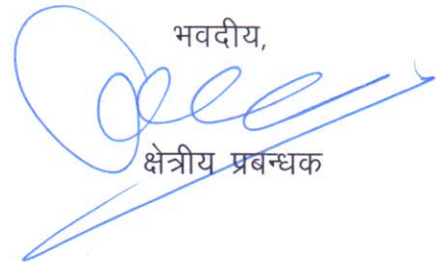 भवदीय,
क्षेत्रीय प्रबन्धक